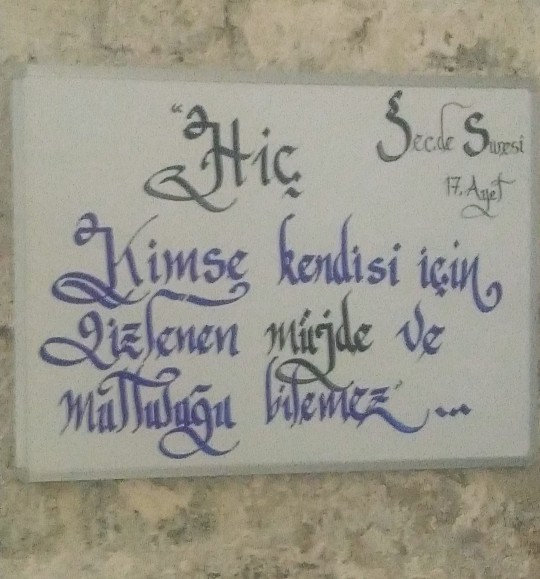 "Hiç
Secde Suresi
17. Ayet
Kimse kendisi için
gizlenen müjde ve
mutluluğu bilemez ...